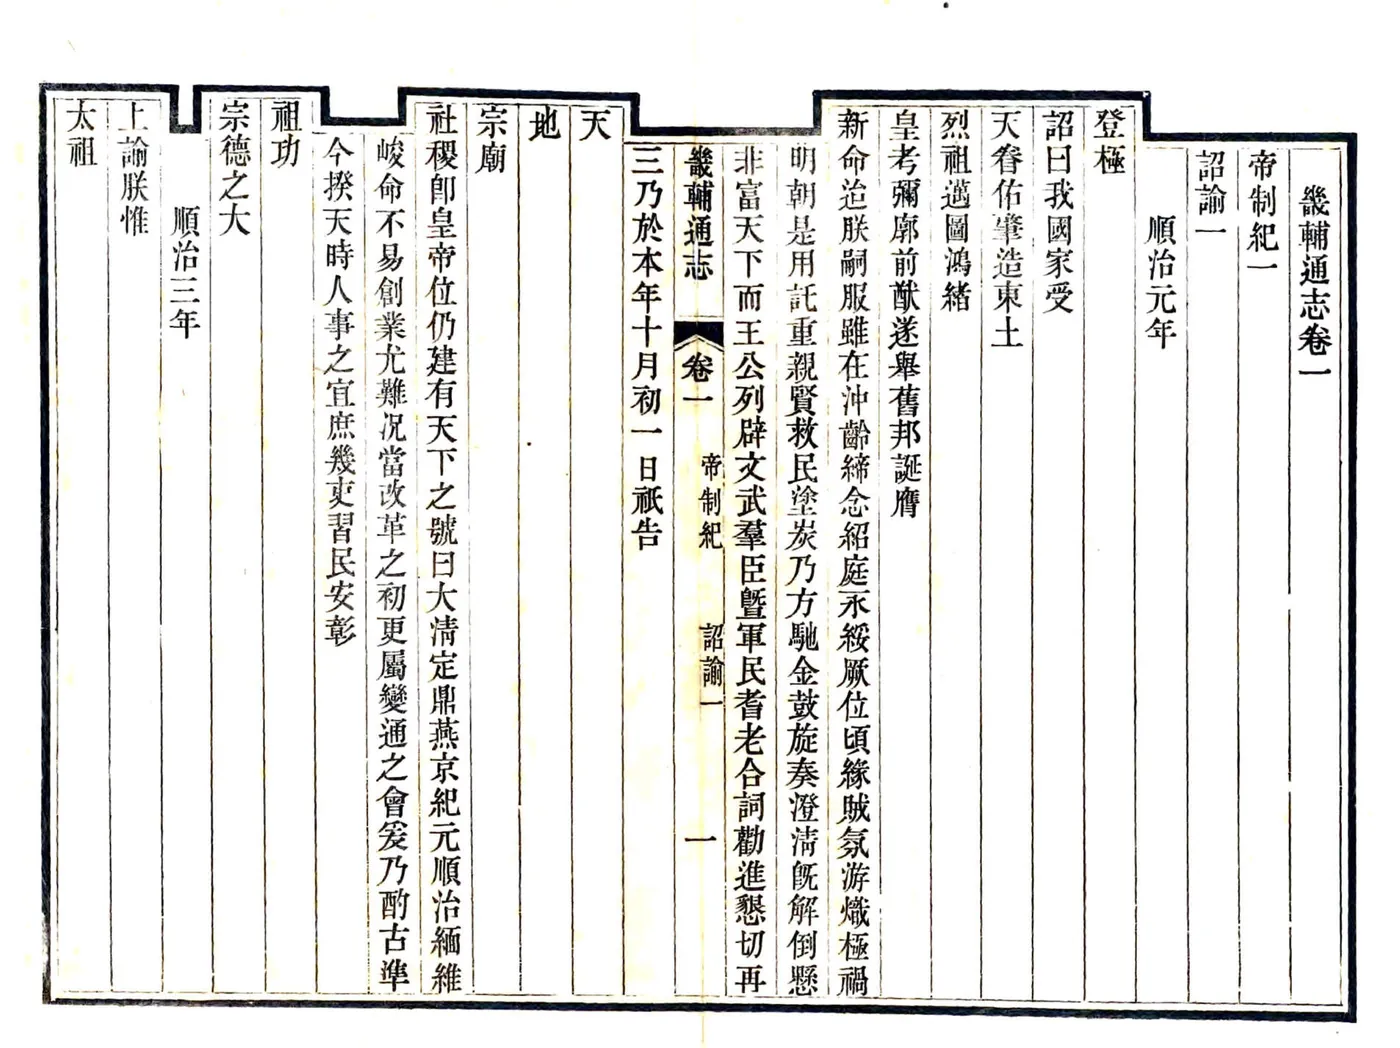 畿輔通志卷一
帝制紀一
詔諭一
順治元年
登極
詔曰我國家受
天眷佑肇造東土
烈祖邁圖鴻緒
皇考彌廓前猷遂舉舊邦誕膺
新命迨朕嗣服雖在沖齡締念紹庭永綏厥位頃緣賊氛游熾極禍
明朝是用託重親賢救民塗炭乃方馳金鼓旋奏澄淸旣解倒懸
非富天下而王公列辟文武羣臣曁軍民耆老合詞勸進懇切再
畿輔通志 卷一 帝制紀 詔諭一 一
三乃於本年十月初一日祇告
天
地
宗廟
社稷卽皇帝位仍建有天下之號曰大淸定鼎燕京紀元順治緬維
峻命不易創業尤難況當改革之初更屬變通之會爰乃酌古準
今揆天時人事之宜庶幾吏習民安彰
祖功
宗德之大
順治三年
上諭朕惟
太祖